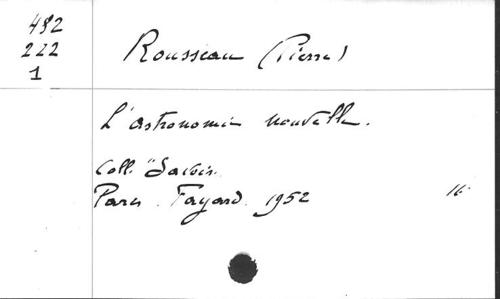 482
222
1
Rousseau (Pierre)
L'astronomie nouvelle.
Coll. "Savoir.
Paris. Fayard. 1952
16